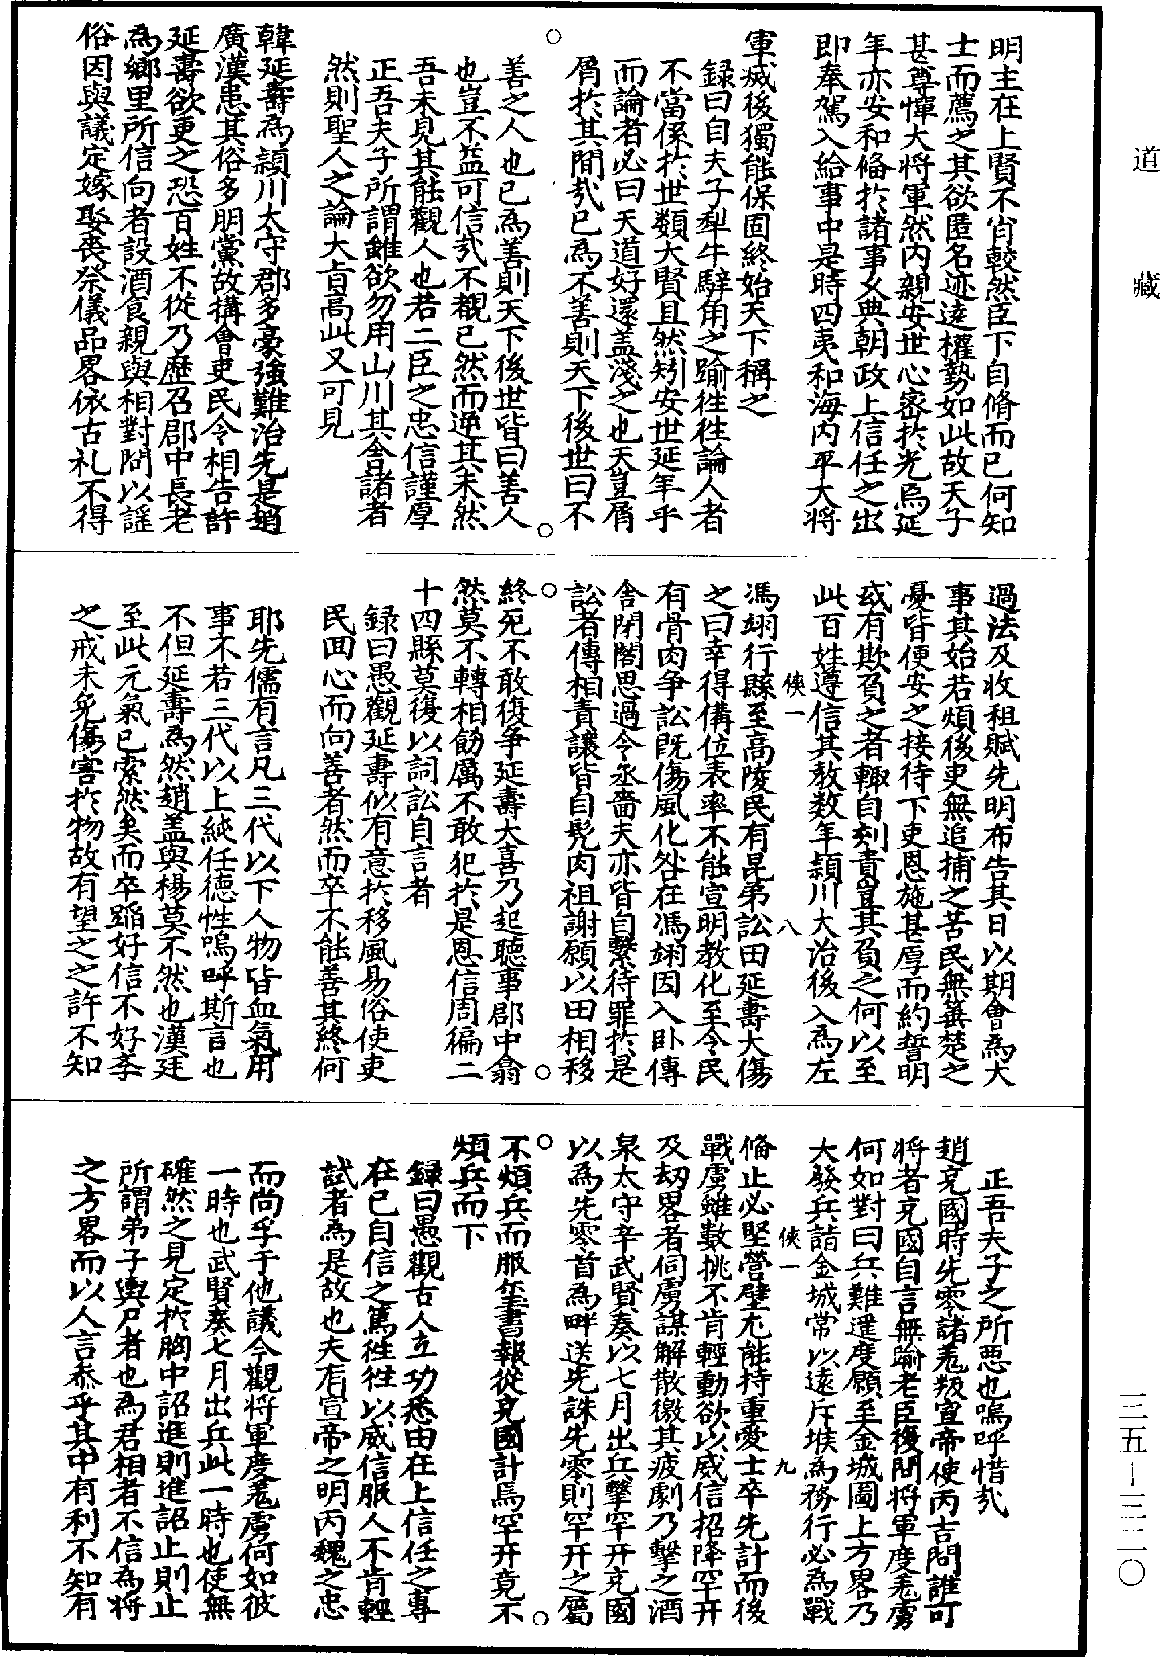 道藏
明主在上賢不肖較然臣下自脩而已何知
士而薦之其欲匿名迹遠權勢如此故天子
甚尊憚大将軍然内親安世心密於光焉延
年亦安和俻於諸事丈典朝政上信任之出
即奉駕入給事中是時四夷和海内平大将
軍薨後獨能保固終始天下稱之
録曰自夫子犁牛騂角之踰徃徃論人者
不當係於世類大賢且然矧安世延年乎
而論者必曰天道好還盖淺之也天豈屑
屑於其間㢤已為不善則天下後世曰不
善之人也已為善則天下後世皆曰善人
也豈不益可信㢤不覩已然而逆其未然
吾未見其能觀人也若二臣之忠信謹厚
正吾夫子所謂雖欲勿用山川其舎諸者
然則聖人之論大㫖髙此又可見
韓延壽為頴川太守郡多豪強難治先是趙
廣漢患其俗多朋黨故搆會吏民令相告訐
延壽欲更之恐百姓不從乃歴召郡中長老
為鄉里所信向者設酒食親與相對問以謡
俗因與議定嫁娶喪祭儀品畧依古礼不得
過法及收租賦先明布告其日以期會為大
事其始若煩後吏無追捕之苦民無箠楚之
憂皆便安之接待下吏恩施甚厚而約誓明
或有欺負之者輙自刻責豈其負之何以至
此百姓遵信其教数年頴川大治後入為左
俠一 八
馮翊行縣至髙陵民有昆弟訟田延壽大傷
之曰幸得俻位表率不能宣明教化至令民
有骨肉争訟既傷風化咎在馮翊因入卧傳
舎閉閤思過令丞嗇夫亦皆自繫待罪於是
訟者傳相責讓皆自髠肉袒謝願以田相移
終死不敢復争延壽大喜乃起聽事郡中翕
然莫不轉相飭厲不敢犯於是恩信周徧二
十四縣莫復以詞訟自言者
録曰愚觀延壽似有意於移風易俗使吏
民囬心而向善者然而卒不能善其終何
耶先儒有言凡三代以下人物皆血氣用
事不若三代以上純任德性嗚呼斯言也
不但延壽為然趙盖與楊莫不然也漢廷
至此元氣已索然矣而卒蹈好信不好李
之戒未免傷害於物故有望之之訐不知
正吾夫子之所惡也嗚呼惜㢤
趙充國時先零諸羗叛宣帝使丙吉問誰可
将者充國自言無踰老臣復問将軍度羗虜
何如對曰兵難遥度願至金城圖上方畧乃
大發兵詣金城常以遠斥堠為務行必為戰
俠一 九
俻止必堅營壁尤能持重愛士卒先計而後
戰虜雖數挑不肯輕動欲以威信招降罕幵
及刼畧者伺虜謀解散徼其疲劇乃擊之酒
泉太守辛武賢奏以七月出兵擊罕幵充國
以為先零首為畔逆先誅先零則罕幵之屬
不煩兵而服矣璽書報從充國計焉罕幵竟不
煩兵而下
録曰愚觀古人立功悉由在上信任之專
在已自信之篤徃徃以威信服人不肯輕
試者為是故也夫有宣帝之明丙魏之忠
而尚孚于他議今觀将軍度羗虜何如彼
一時也武賢奏七月出兵此一時也使無
確然之見定於胸中詔進則進詔止則止
所謂弟子輿尸者也為君相者不信為将
之方畧而以人言叅乎其中有利不知有
三五—三二〇